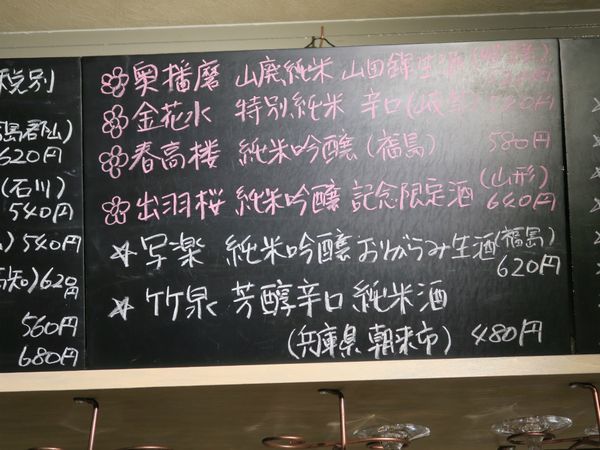 税別
島郡山)
620円
(石川)
540円
540円
知)620円
560円
680円
奥播磨 山廃純米 山田錦生酒
金花水 特別純米 辛口(岐阜)
春高楼 純米吟醸(福島) 580円
出羽桜 純米吟醸 記念限定酒(山形) 640円
写楽 純米吟醸おりがらみ生酒(福島) 620円
竹泉 芳醇辛口純米酒
(兵庫県朝来市) 480円